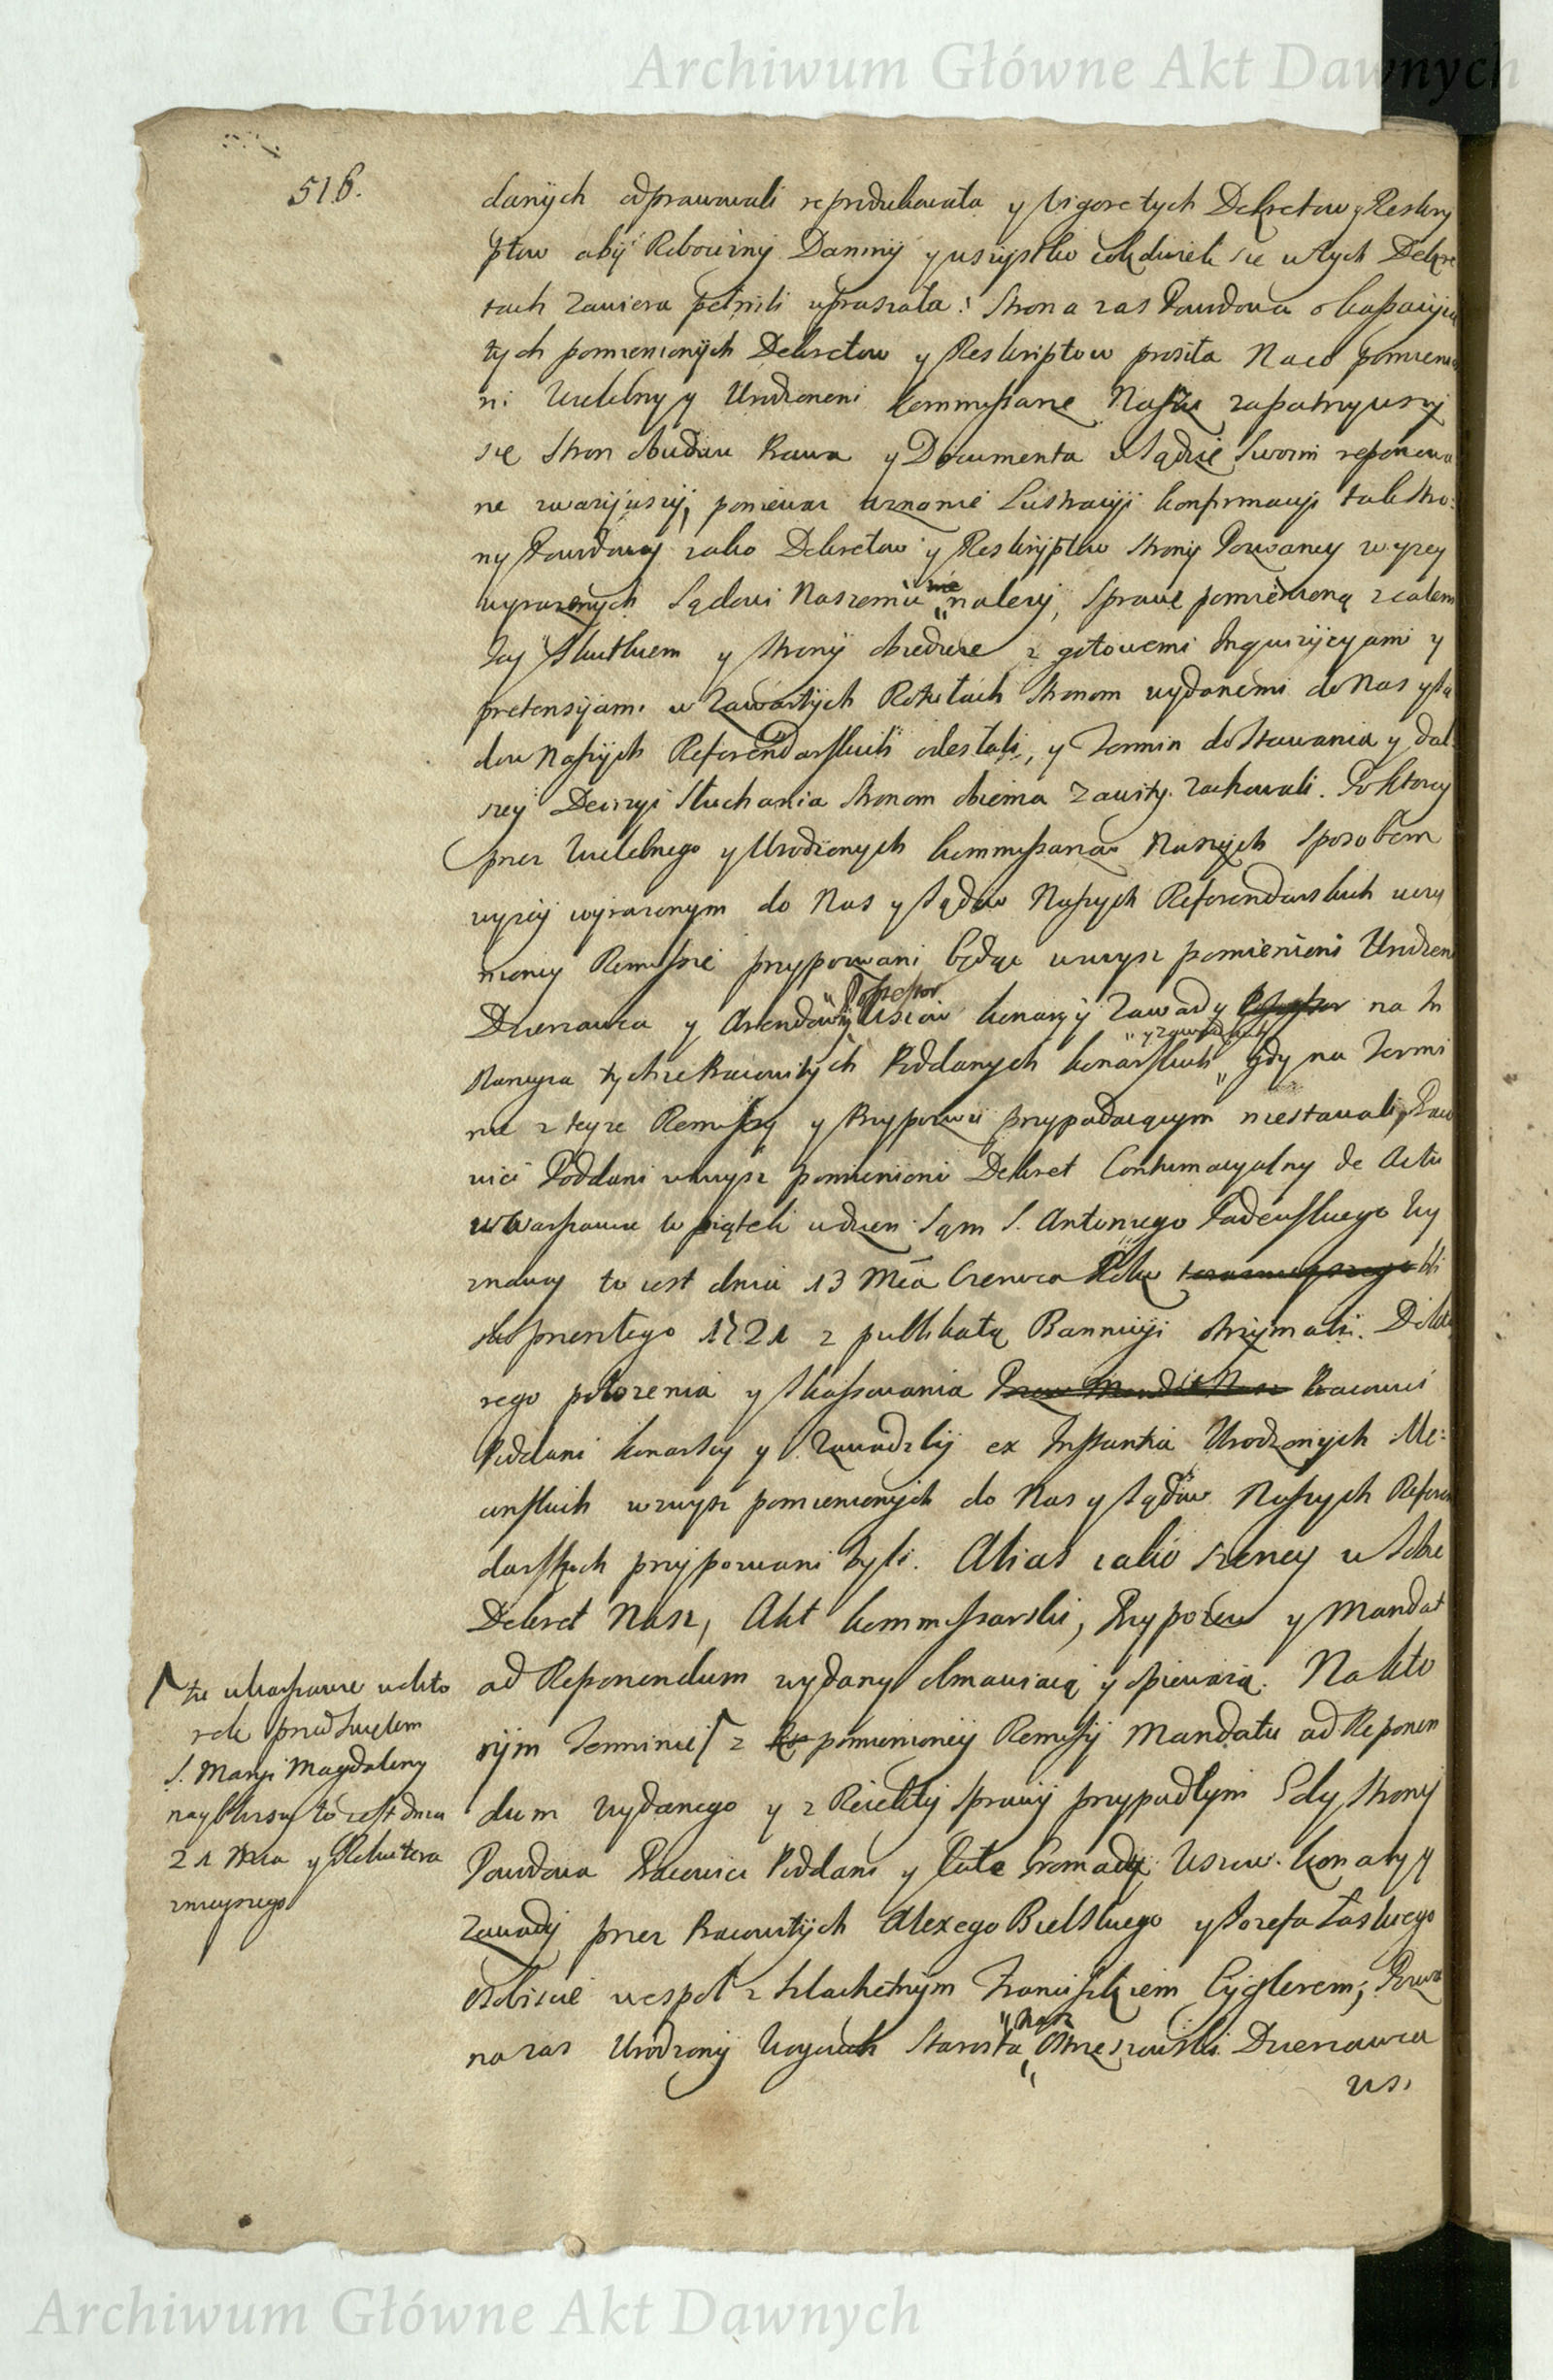 Archiwum Główne Akt Dawnych
516.
danych odprawowali reprodukowała y vigore tych Dekretow y Reskry
ptow aby Robocizny Daniny y wszystko cokolwiek się w tych Dekre
tach zawiera pełnili upraszała: Strona zas Powodowa o kassacyią
tych pomienionych Dekretow y Reskriptow prosiła Naco pomienio
ni Wielebny y Urodzeni Kommissarze Nasze zapatrzywszy
się Stron obudwu Prawa y Documenta w Sądzie Swoim reponowa
ne zwazywszy, poniewaz uznanie Lustracyi konfirmacyi tak Stro:
ny Powodowey iako Dekretow y Reskryptow Strony Pozwaney wyzey
wyrazonych Sądowi Naszemu nie nalezy, Sprawę pomienioną z całem
Iey Skutkiem y Strony obiedwie z gotowemi Inquizycyami y
pretensyiami w zawartych Rotułach Stronom wydanemi do Nas y Są
dow Naszych Referendarskich odesłali, y Termin do Stawania y dal
szey Decizyi Słuchania Stronom obiema zawity zachowali. Po ktorey
przez Wielebnego y Urodzonych Kommissarzow Naszych Sposobem
wyzey wyrazonym do Nas y Sądow Naszych Referendarskich uczy
nioney Remissie przypozwani będąc wwysz pomienieni Urodzeni
Dzierzawca y Arendowny Possessor Wsiow Konary y Zawady na In
stancyą tychze Pracowitych Poddanych Konarskich y Zawadzkich Gdy na Termi
nie z teyze Remissy y Przypozwu przypadaiącym niestawali, Praco
wici Poddani wwysz pomienieni Dekret Contumacyalny de Actu
w Warszawie w piątek w dzien Sam S. Antoniego Padewskiego Wy
znawcy to iest dnia 13 Mća Czerwca Roku teraznieyszego bli
sko przeszłego 1721 z publikatą Bannicyi otrzymali. Do kto
rego połozenia y Skassowania Pracowici
Poddani Konarscy y Zawadzcy ex Instantia Urodzonych Mę:
cinskich wzwysz pomienionych do Nas y Sądow Naszych Referen
darskich przypozwani byli. Alias iako szerzey w Sobie
Dekret Nasz, Akt Kommissarski, Przypozew y Mandat
ad Reponendum wydany obmawiaią y opiewaią. Na kto
rym Terminie z pomienioney Remissy Mandatu ad Reponen
dum wydanego y z Reiekty Sprawy przypadłym Gdy Strony
Powodowa Pracowici Poddani y Cała Gromady Wsiow. Konary y
Zawady przez Pracowitych Alexego Bielskiego y Jozefa Łaskiego
osobiscie wespoł z Szlachetnym Franciszkiem Cyglerem; Pozwa
na zas Urodzony Woyciech Starosta Nasz Ostrzeszowski Dzierzawca
ws.
tu w Warszawie we wto
rek przed Swiętem
S. Maryi Magdaleny
nayblizszy to iest dnia
21 Mca y Roku tera
znieyszego
Archiwum Główne Akt Dawnych